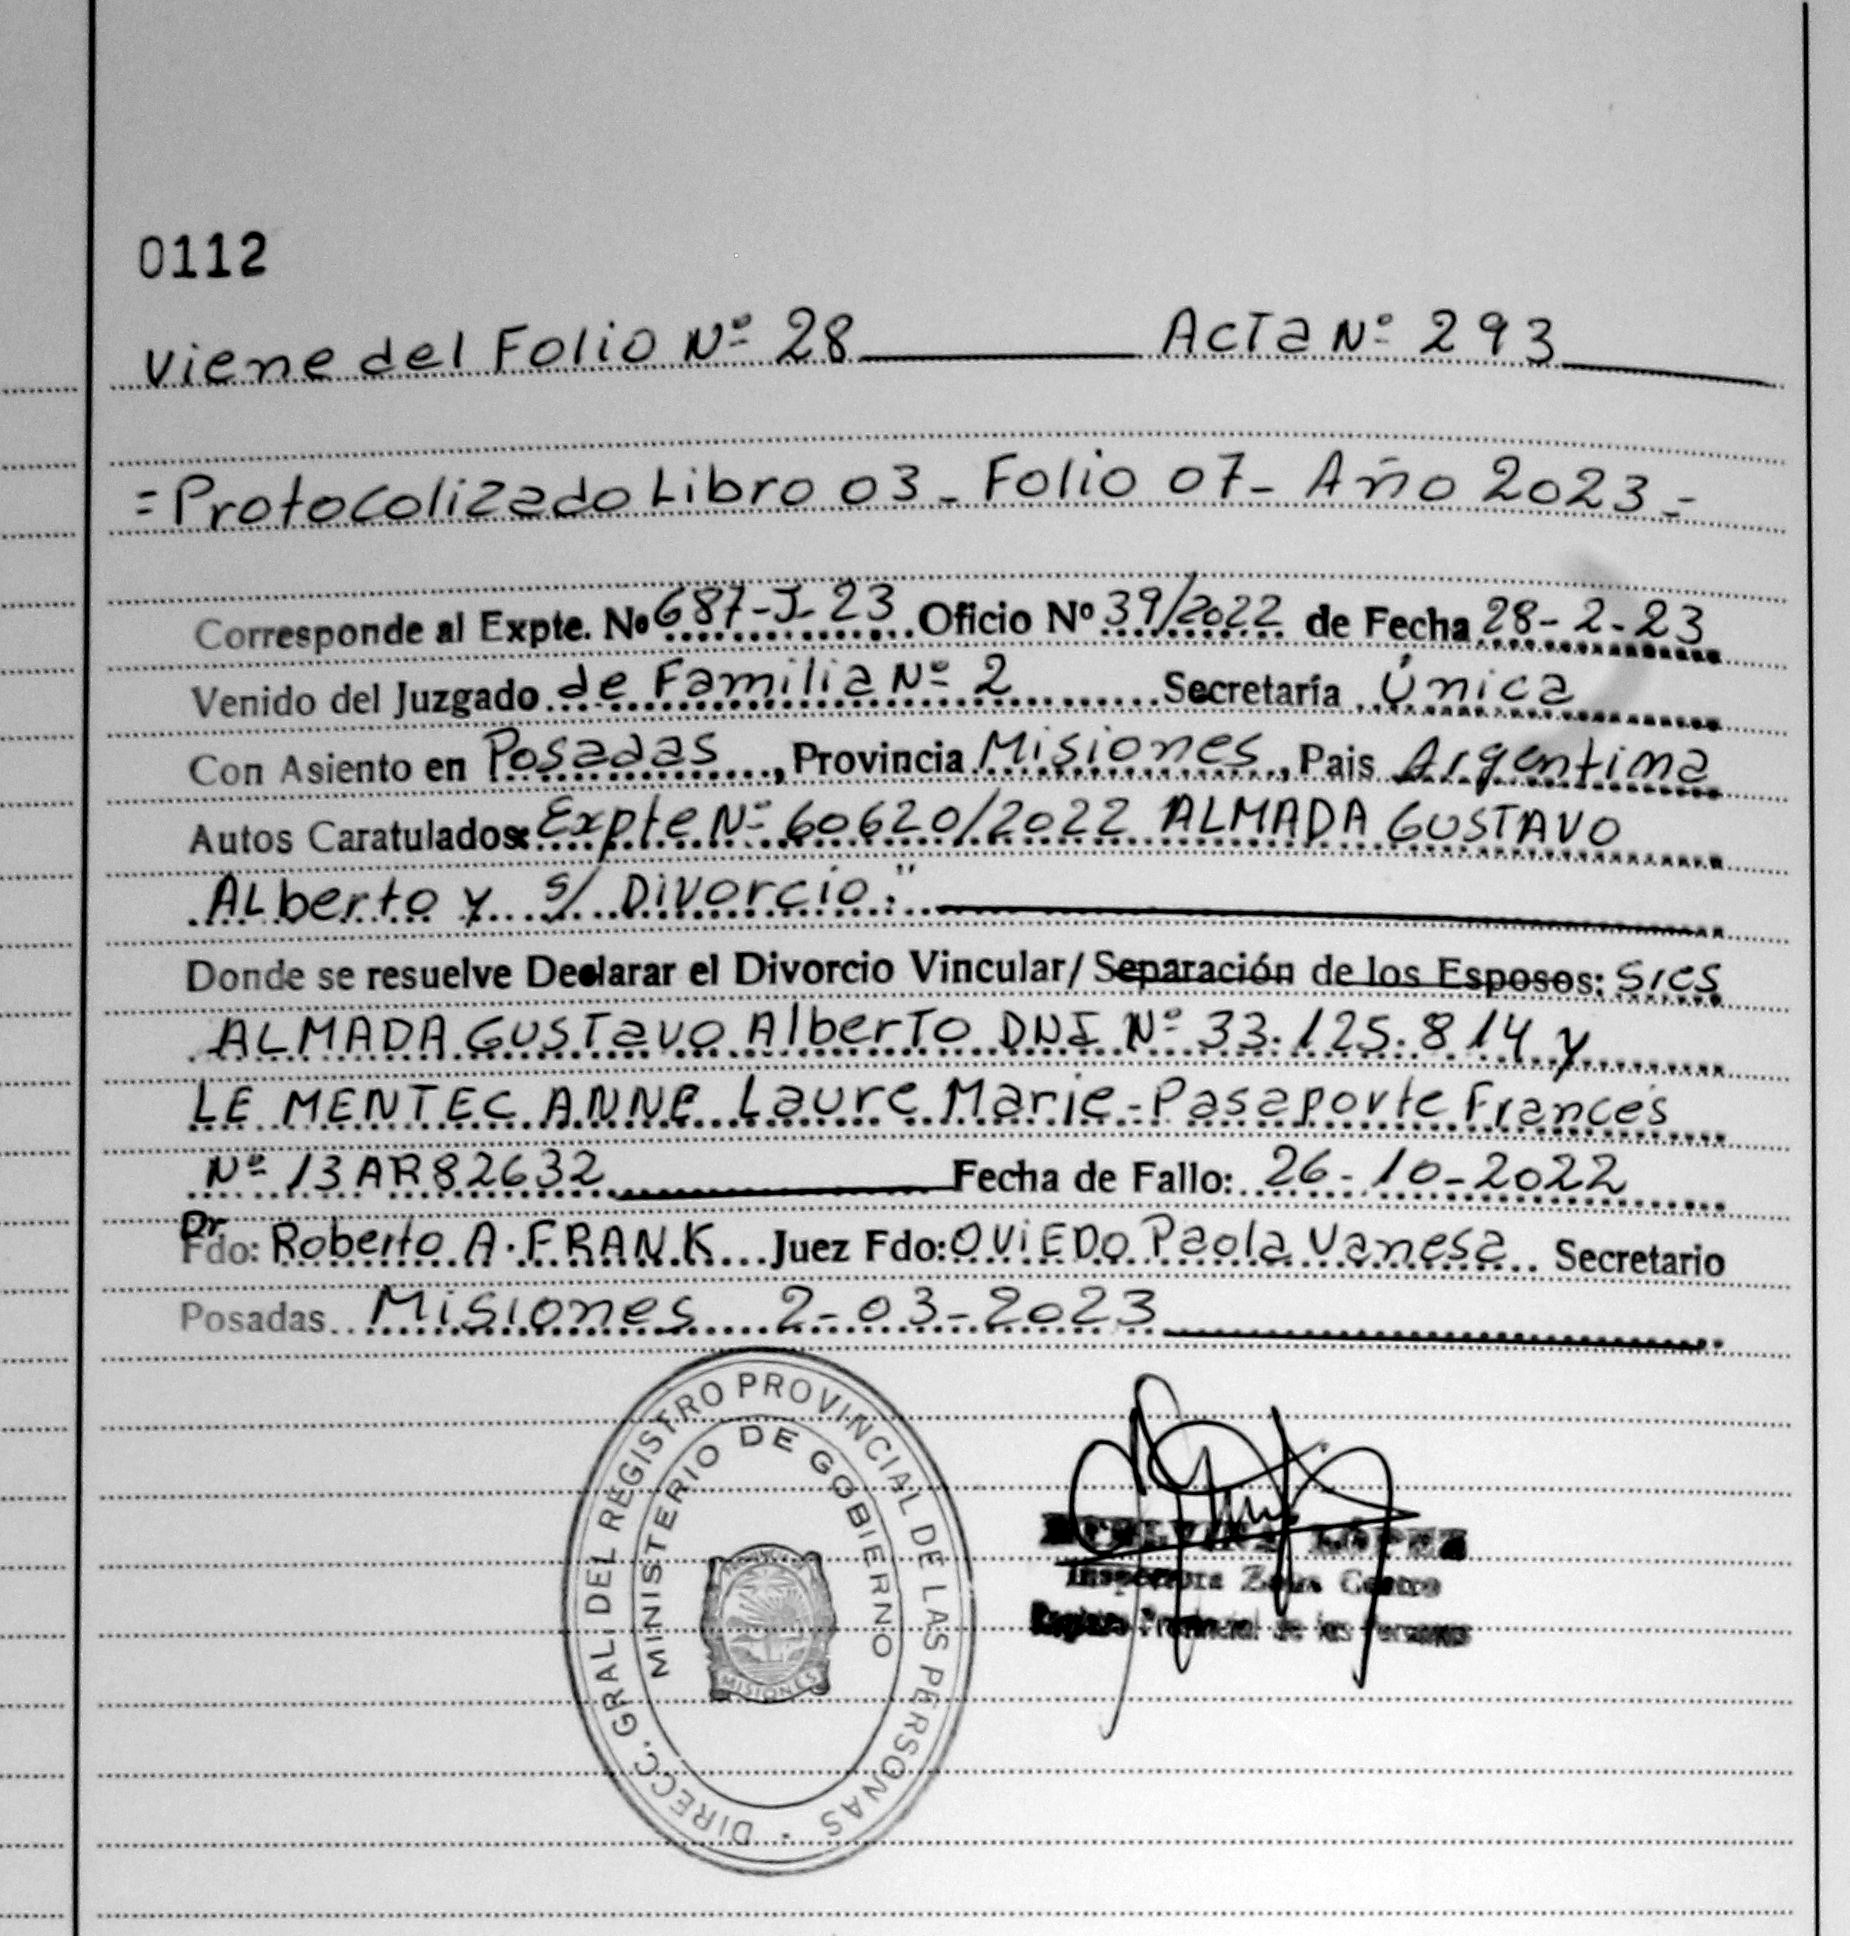 0112
Viene del Folio Nº 28 Acta Nº 293
=Protocolizado Libro 03_ Folio 07_ Año 2023_=
Corresponde al Expte. Nº 687-J-23 Oficio Nº 39/2022 de Fecha 28-2-23
Venido del Juzgado de Familia Nº 2 Secretaría Única
Con Asiento en Posadas, Provincia Misiones, Pais Argentina
Autos Caratulados: Expte Nº 60620/2022 ALMADA GUSTAVO
ALberto y s/ Divorcio."
Donde se resuelve Declarar el Divorcio Vincular/ Separación de los Esposos: Sres
ALMADA GUSTavo AlberTo DNI Nº 33.125.814 y
LE MENTEC ANNE Laure Marie-Pasaporte Francés
Nº 13AR82632 Fecha de Fallo: 26-10-2022
Dr
Fdo: Roberto A. FRANK Juez Fdo: OViEDo Paola Vanesa Secretario
Posadas Misiones 2-03-2023
DIRECC. GRAL. DEL REGISTRO PROVINCIAL DE LAS PERSONAS
MINISTERIO DE GOBIERNO
MISIONES
Inspectora Zona Centro
Registro Provincial de las Personas